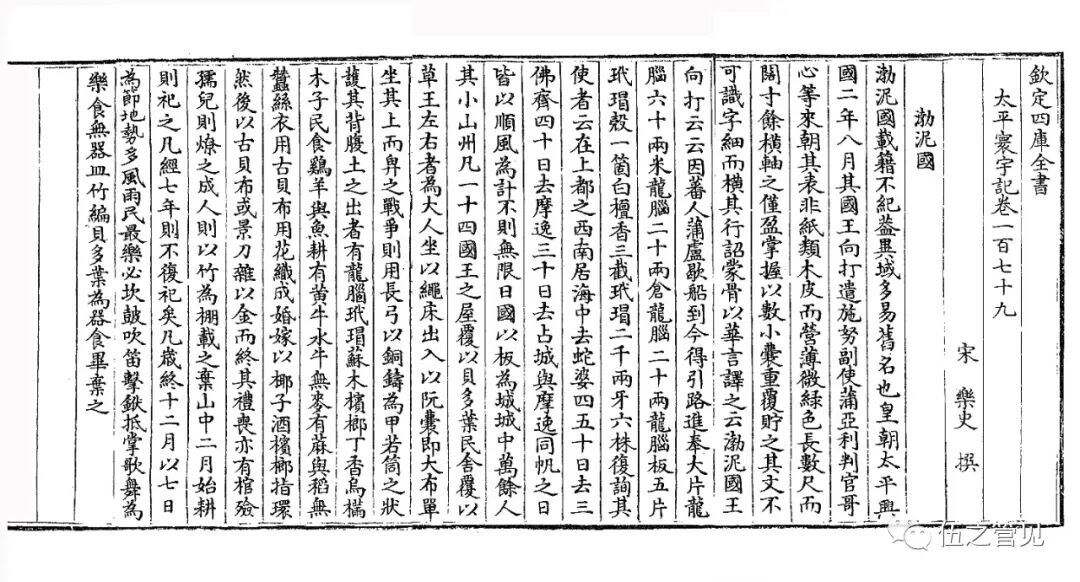 欽定四庫全書
太平寰宇記卷一百七十九
宋 樂史 撰
渤泥國
渤泥國載籍不紀葢異域多易舊名也皇朝太平興
國二年八月其國王向打遣施努副使蒲亞利判官哥
心等來朝其表非紙類木皮而營薄微綠色長數尺而
闊寸餘横軸之僅盈掌握以數小囊重覆貯之其文不
可識字細而横其行詔蒙骨以華言譯之云渤泥國王
向打云云因蕃人蒲盧歇船到今得引路進奉大片龍
腦六十兩米龍腦二十兩倉龍腦二十兩龍腦板五片
玳瑁殻一箇白檀香三截玳瑁二千兩牙六株復詢其
使者云在上都之西南居海中去蛇婆四五十日去三
佛齊四十日去摩逸三十日去占城與摩逸同帆之日
皆以順風為計不則無限日國以板為城城中萬餘人
其小山州凡一十四國王之屋覆以貝多葉民舍覆以
草王左右者為大人坐以繩床出入以阮囊即大布單
坐其上而舁之戰爭則用長弓以銅鑄為甲若筒之狀
護其背腹土之出者有龍腦玳瑁蘇木檳榔丁香烏樠
木子民食鷄羊與魚耕有黄牛水牛無麥有蔴與稻無
蠶絲衣用古貝布用花織成婚嫁以椰子酒檳榔指環
然後以古貝布或景刀雜以金而終其禮喪亦有棺殮
孺兒則燎之成人則以竹為棚載之棄山中二月始耕
則祀之凡經七年則不復祀矣凡歳終十二月以七日
為節地勢多風雨民最樂必坎鼓吹笛擊鈸抵掌歌舞為
樂食無器皿竹編貝多葉為器食畢棄之
伍之管见